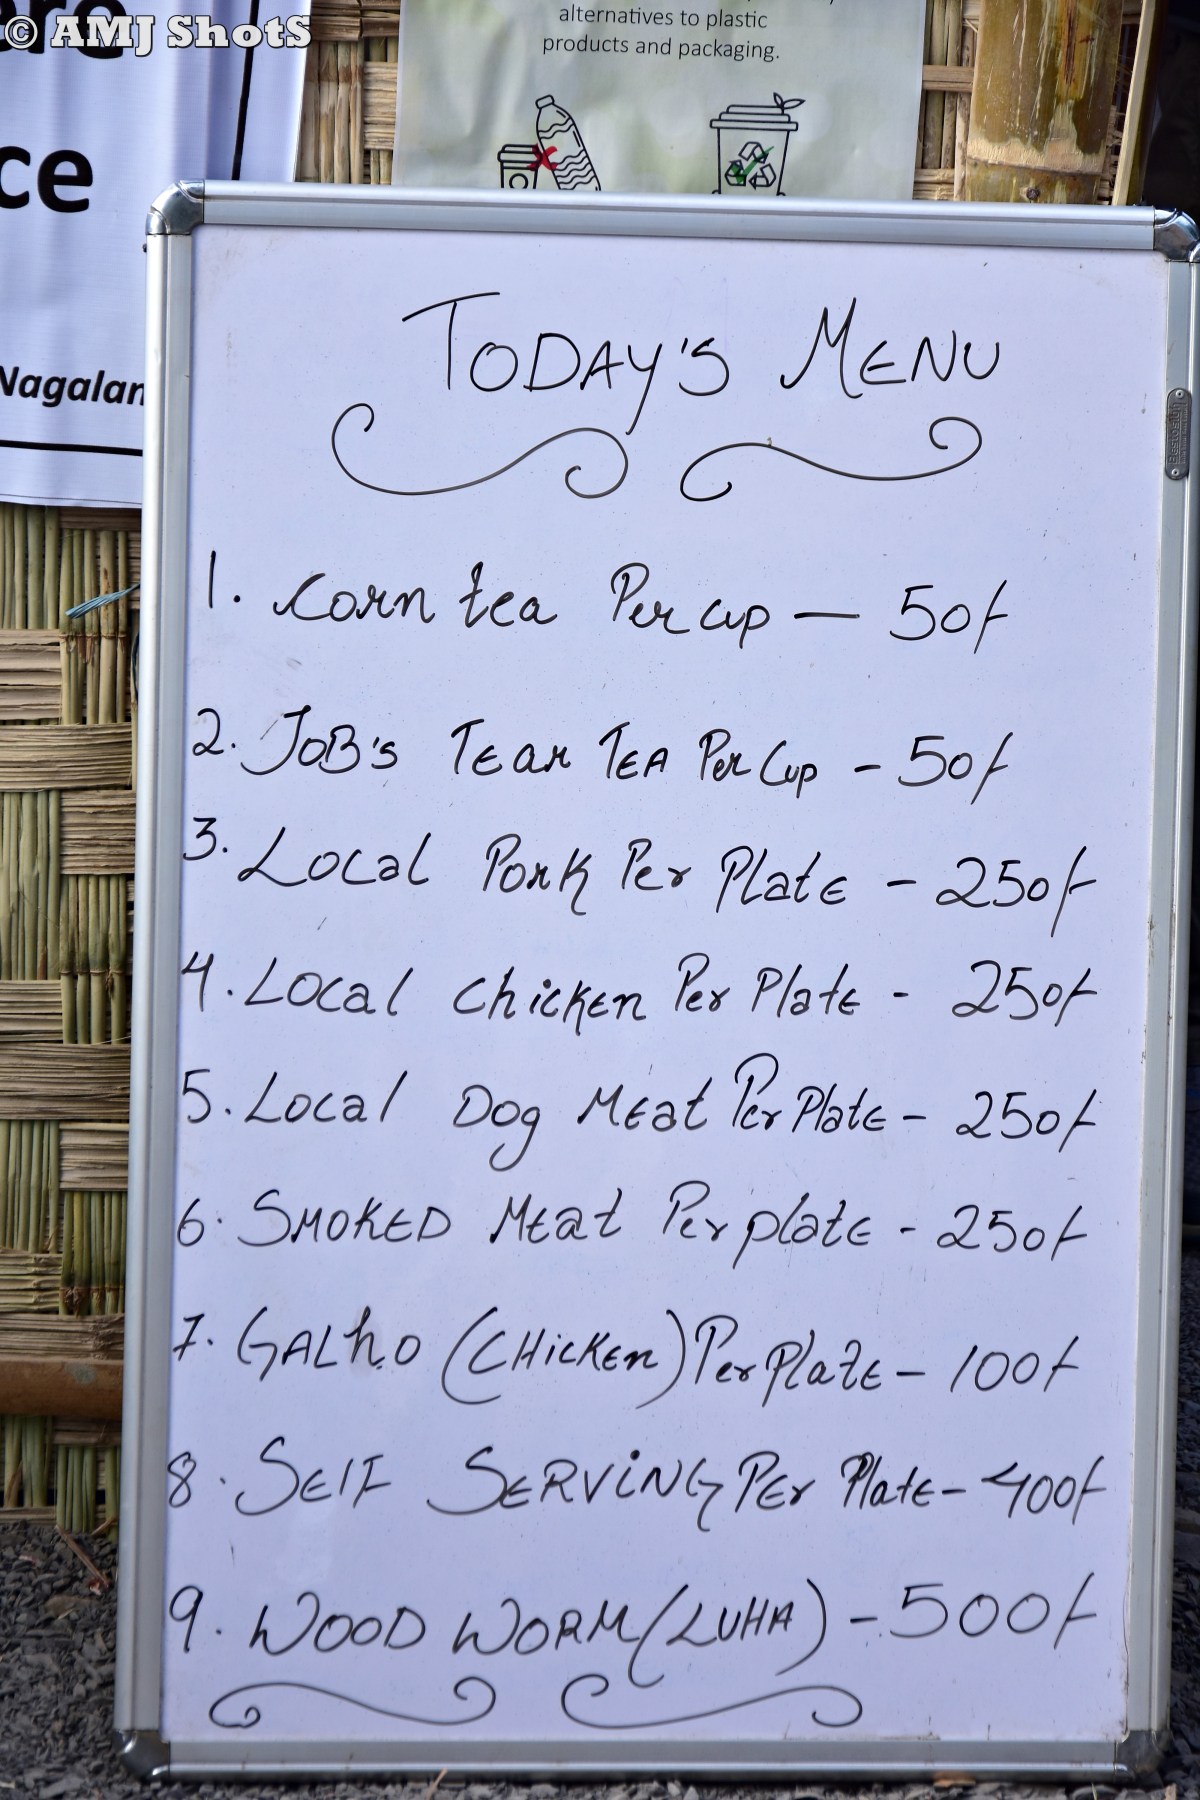 © AMJ ShotS
alternatives to plastic
products and packaging.
ce
Nagalan
TODAY'S MENU
1. Corn tea Per cup — 50/-
2. JOB's TEar TEA Per Cup - 50/-
3. Local Pork Per Plate - 250/-
4. Local Chicken Per Plate - 250/-
5. Local Dog Meat Per Plate - 250/-
6. SMOKED Meat Per plate - 250/-
7. GALhO (CHicKEn) Per Plate - 100/-
8. SElF SERViNG PEr Plate - 400/-
9. WOOD WORM (LUHA) - 500/-